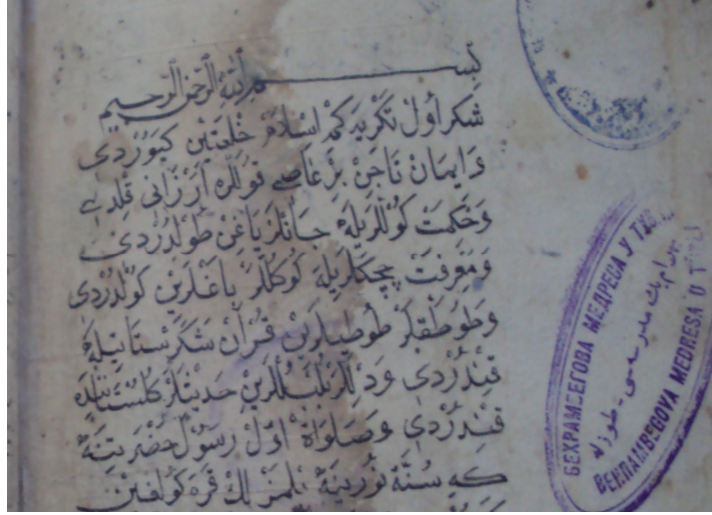 بسم الله الرحمن الرحيم
شكر اول تكريه كم اسلام خلعتين كيوردى
و ايمان تاجن بز عاصى قوللره ارزانى قلدى
و حكمت كوللريله جانلر باغن طولدردى
و معرفت چچكلريله كوكللر باغلرين كولدردى
و طوطقلر طوطيلرين قران شكرستانيله
قندردى و دللر بلبللرين حديثلر كلستاننده
قندردى و صلواة اول رسول حضرتينه
كه سنة نورينه بلمزلك قره كولغين
БЕХРАМБЕГОВА МЕДРЕСА У
BEHRAMBEGOVA MEDRESA U
بهرام بك مدرسه سى - طوزله